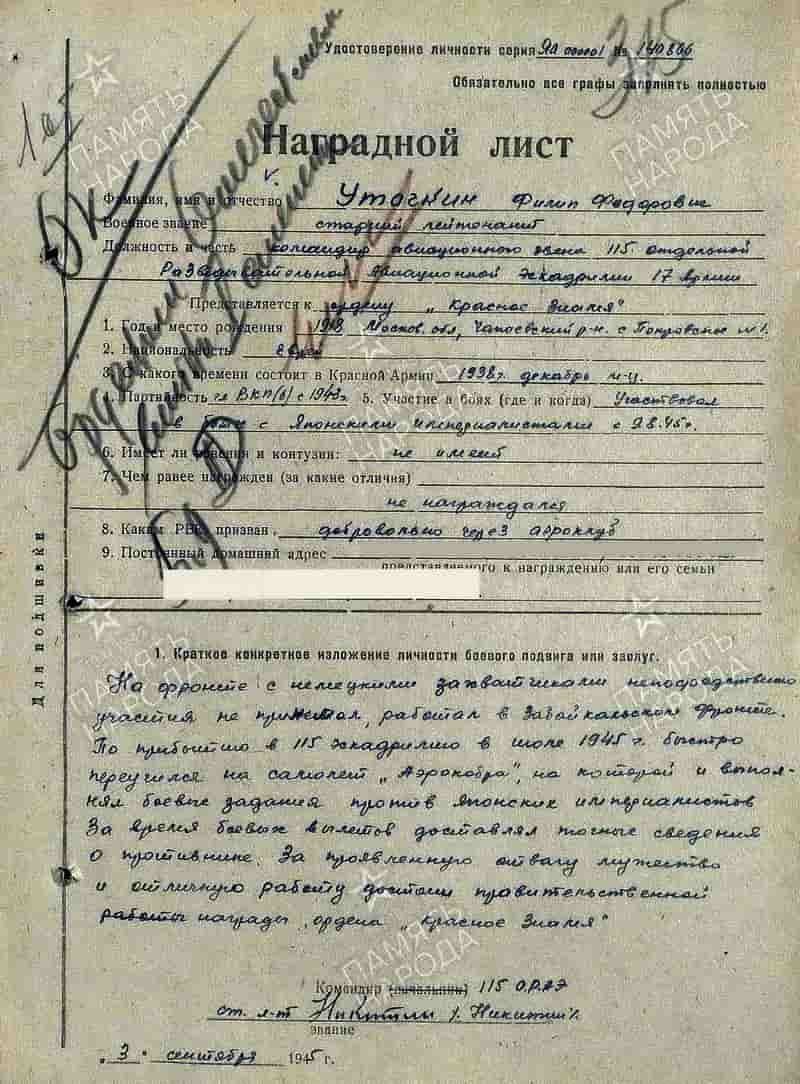 Удостоверение личности серия ЯД 00001 № 140866
315
Обязательно все графы заполнять полностью
Наградной лист
Фамилия, имя и отчество Уточкин Филип Федорович
Военное звание старший лейтенант
Должность и часть командир авиационного звена 115 отдельной
Разведывательной авиационной эскадрилии 17 Армии
Представляется к ордену „Красное Знамя"
1. Год и место рождения 1918 Москов. обл, р-н. с Покровское
2. Национальность
3. С какого времени состоит в Красной Армии 1938г. декабрь м-ц.
4. Партийность чл ВКП(б) с 1943г 5. Участие в боях (где и когда) Участвовал
в боях с Японскими империалистами с 9.8.45г.
6. Имеет ли ранения и контузии: не имеет
7. Чем ранее награжден (за какие отличия)
не награждался
8. Каким РВК призван добровольно через аэроклуб
9. Постоянный домашний адрес
представляемого к награждению или его семьи
Для подшивки
1. Краткое конкретное изложение личности боевого подвига или заслуг.
На фронте с немецкими захватчиками непосредственно
участия не принимал, работал в Забайкальском фронте.
По прибытию в 115 эскадрилию в июле 1945 г. быстро
переучился на самолет „Аэрокобра", на которой и выпол-
нял боевые задания против Японских империалистов
За время боевых вылетов доставлял точные сведения
о противнике. За проявленную отвагу мужество
и отличную работу достоин правительственной
работы награды, ордена „Красное Знамя"
Командир (начальник) 115 О.Р.АЭ
ст. л-т Никитин /. Никитин /.
звание
„3" сентября 1945 г.
ПАМЯТЬ НАРОДА